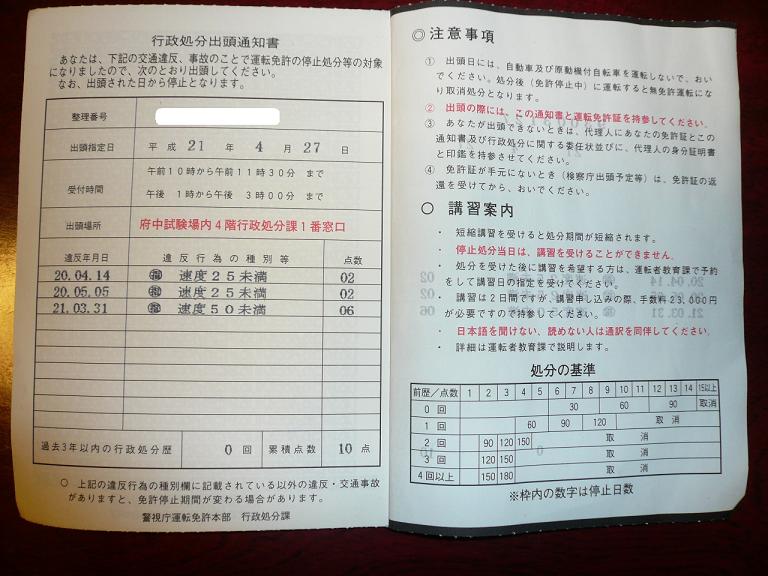 行政処分出頭通知書
あなたは、下記の交通違反、事故のことで運転免許の停止処分等の対象
になりましたので、次のとおり出頭してください。
なお、出頭された日から停止となります。
整理番号
出頭指定日 平成 21 年 4 月 27 日
受付時間 午前10時から午前11時30分 まで
午後 1時から午後 3時00分 まで
出頭場所 府中試験場内4階行政処分課1番窓口
違反年月日 違反行為の種別等 点数
20.04.14 速度25未満 02
20.05.05 速度25未満 02
21.03.31 速度50未満 06
過去3年以内の行政処分歴 0 回 累積点数 10 点
○ 上記の違反行為の種別欄に記載されている以外の違反・交通事故
がありますと、免許停止期間が変わる場合があります。
警視庁運転免許本部 行政処分課
◎ 注意事項
① 出頭日には、自動車及び原動機付自転車を運転しないで、おい
でください。処分後（免許停止中）に運転すると無免許運転にな
り取消処分となります。
② 出頭の際には、この通知書と運転免許証を持参してください。
③ あなたが出頭できないときは、代理人にあなたの免許証とこの
通知書及び行政処分に関する委任状並びに、代理人の身分証明書
と印鑑を持参させてください。
④ 免許証が手元にないとき（検察庁出頭予定等）は、免許証の返
還を受けてから、おいでください。
○ 講習案内
・ 短縮講習を受けると処分期間が短縮されます。
・ 停止処分当日は、講習を受けることができません。
・ 処分を受けた後に講習を希望する方は、運転者教育課で予約
をして講習日の指定を受けてください。
・ 講習は2日間ですが、講習申し込みの際、手数料23,000円
が必要ですので持参してください。
・ 日本語を聞けない、読めない人は通訳を同伴してください。
・ 詳細は運転者教育課で説明します。
処分の基準
前歴／点数 1 2 3 4 5 6 7 8 9 10 11 12 13 14 15以上
0 回 30 60 90 取消
1 回 60 90 120 取 消
2 回 90 120 150 取 消
3 回 120 150 取 消
4回以上 150 180 取 消
※枠内の数字は停止日数